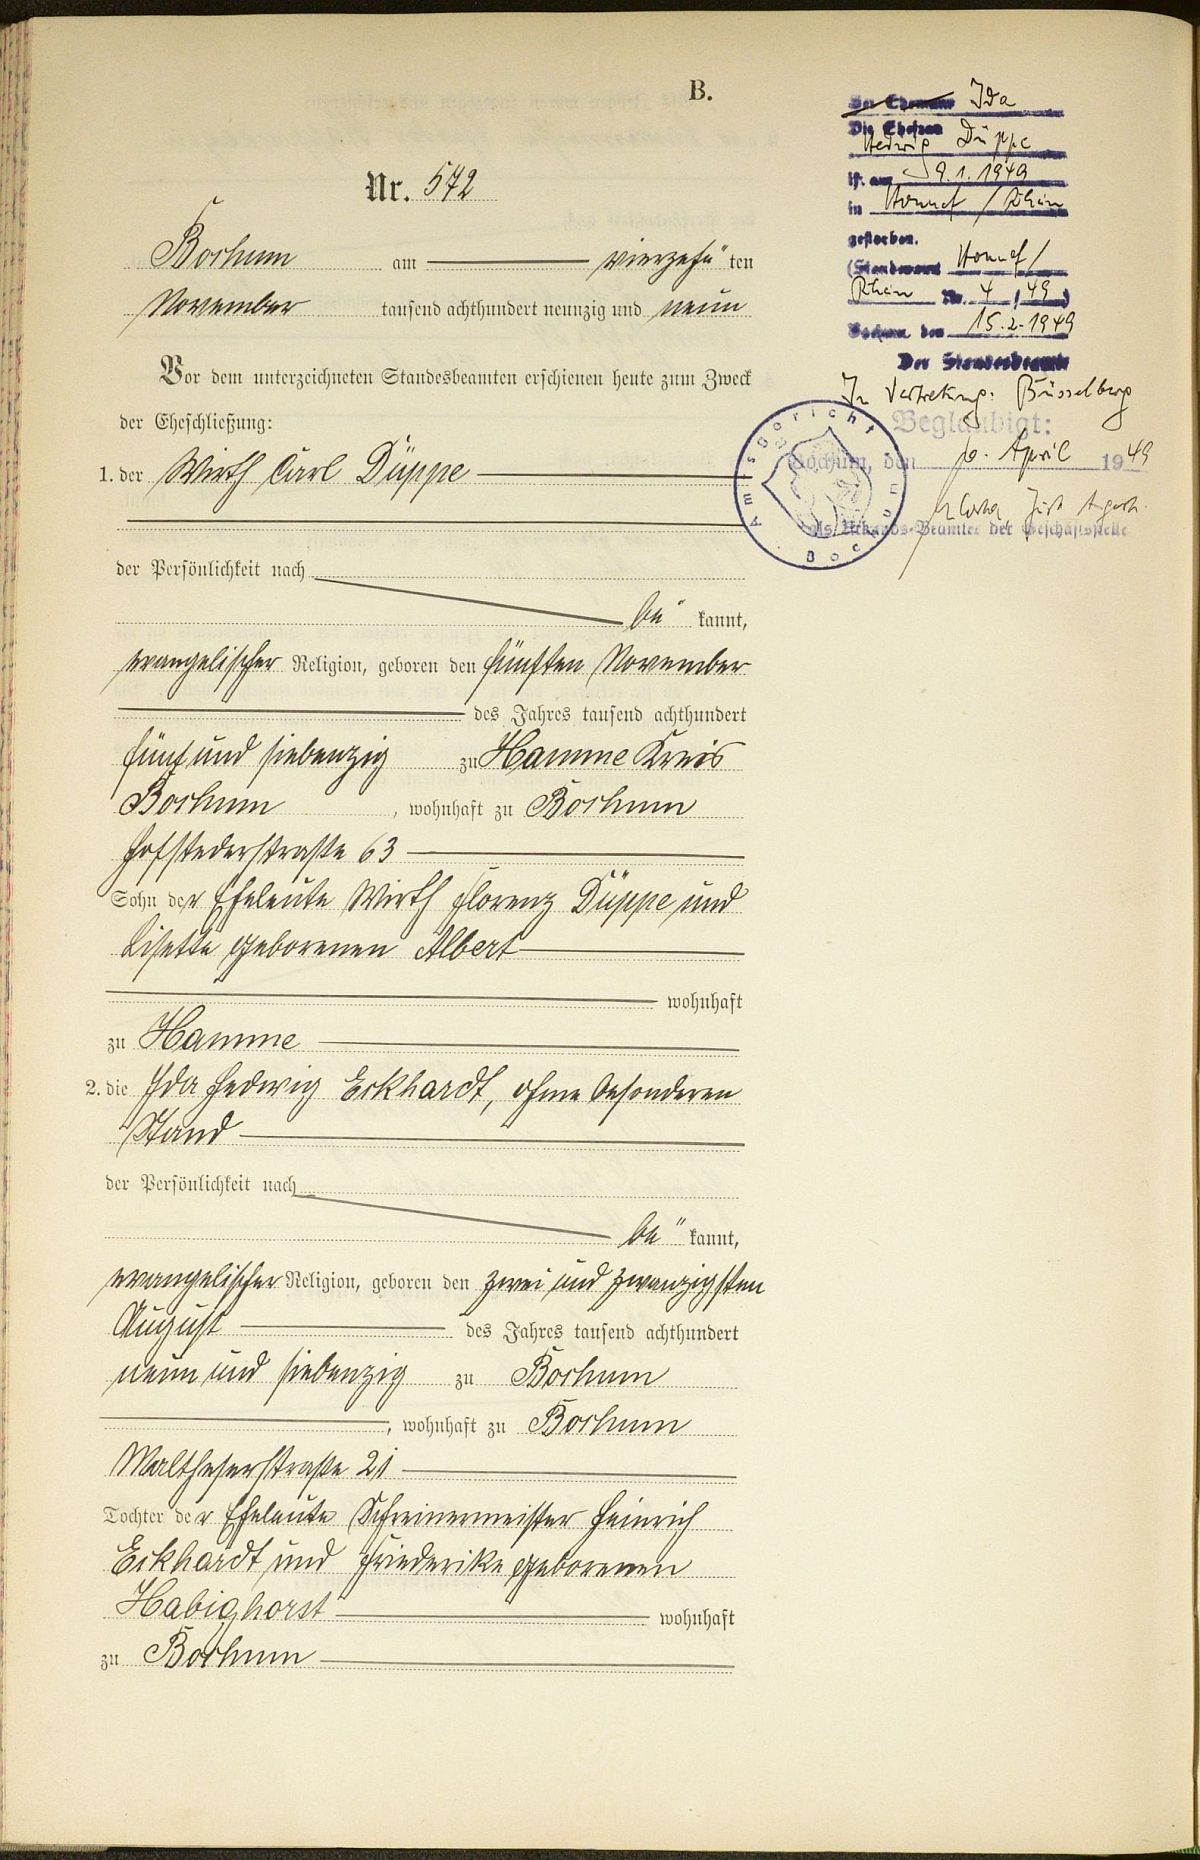 B.
Nr. 572
Bochum am vierzehn" ten
November tausend achthundert neunzig und neun
Vor dem unterzeichneten Standesbeamten erschienen heute zum Zweck
der Eheschließung:
1. der Wirth Carl Düppe
der Persönlichkeit nach
be" kannt,
evangelischer Religion, geboren den fünften November
des Jahres tausend achthundert
fünf und siebenzig zu Hamme Kreis
Bochum, wohnhaft zu Bochum
Hofstederstraße 63
Sohn der Eheleute Wirth Florenz Düppe und
Lisette geborenen Albert
wohnhaft
zu Hamme
2. die Ida Hedwig Eckhardt, ohne besonderen
Stand
der Persönlichkeit nach
be" kannt,
evangelischer Religion, geboren den zwei und zwanzigsten
August des Jahres tausend achthundert
neun und siebenzig zu Bochum
, wohnhaft zu Bochum
Maltheserstraße 21
Tochter der Eheleute Schreinermeister Heinrich
Eckhardt und Friederike geborenen
Habighorst wohnhaft
zu Bochum
Der Ehemann Ida
Die Ehefrau
Hedwig Düppe
ist am 9.1.1949
in Honnef / Rhein
gestorben.
(Standesamt Honnef /
Rhein Nr. 4 / 49)
Bochum den 15.2.1949
Der Standesbeamte
In Vertretung: Büsselberg
Beglaubigt:
Bochum, den 6. April 1949
Just. Angest.
als Urkunds-Beamter der Geschäftsstelle
Amtsgericht Bochum